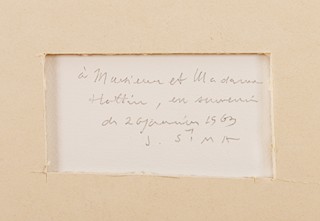 à Monsieur et Madame
Hottin, en souvenir
du 20 janvier 1963
J. SIMA